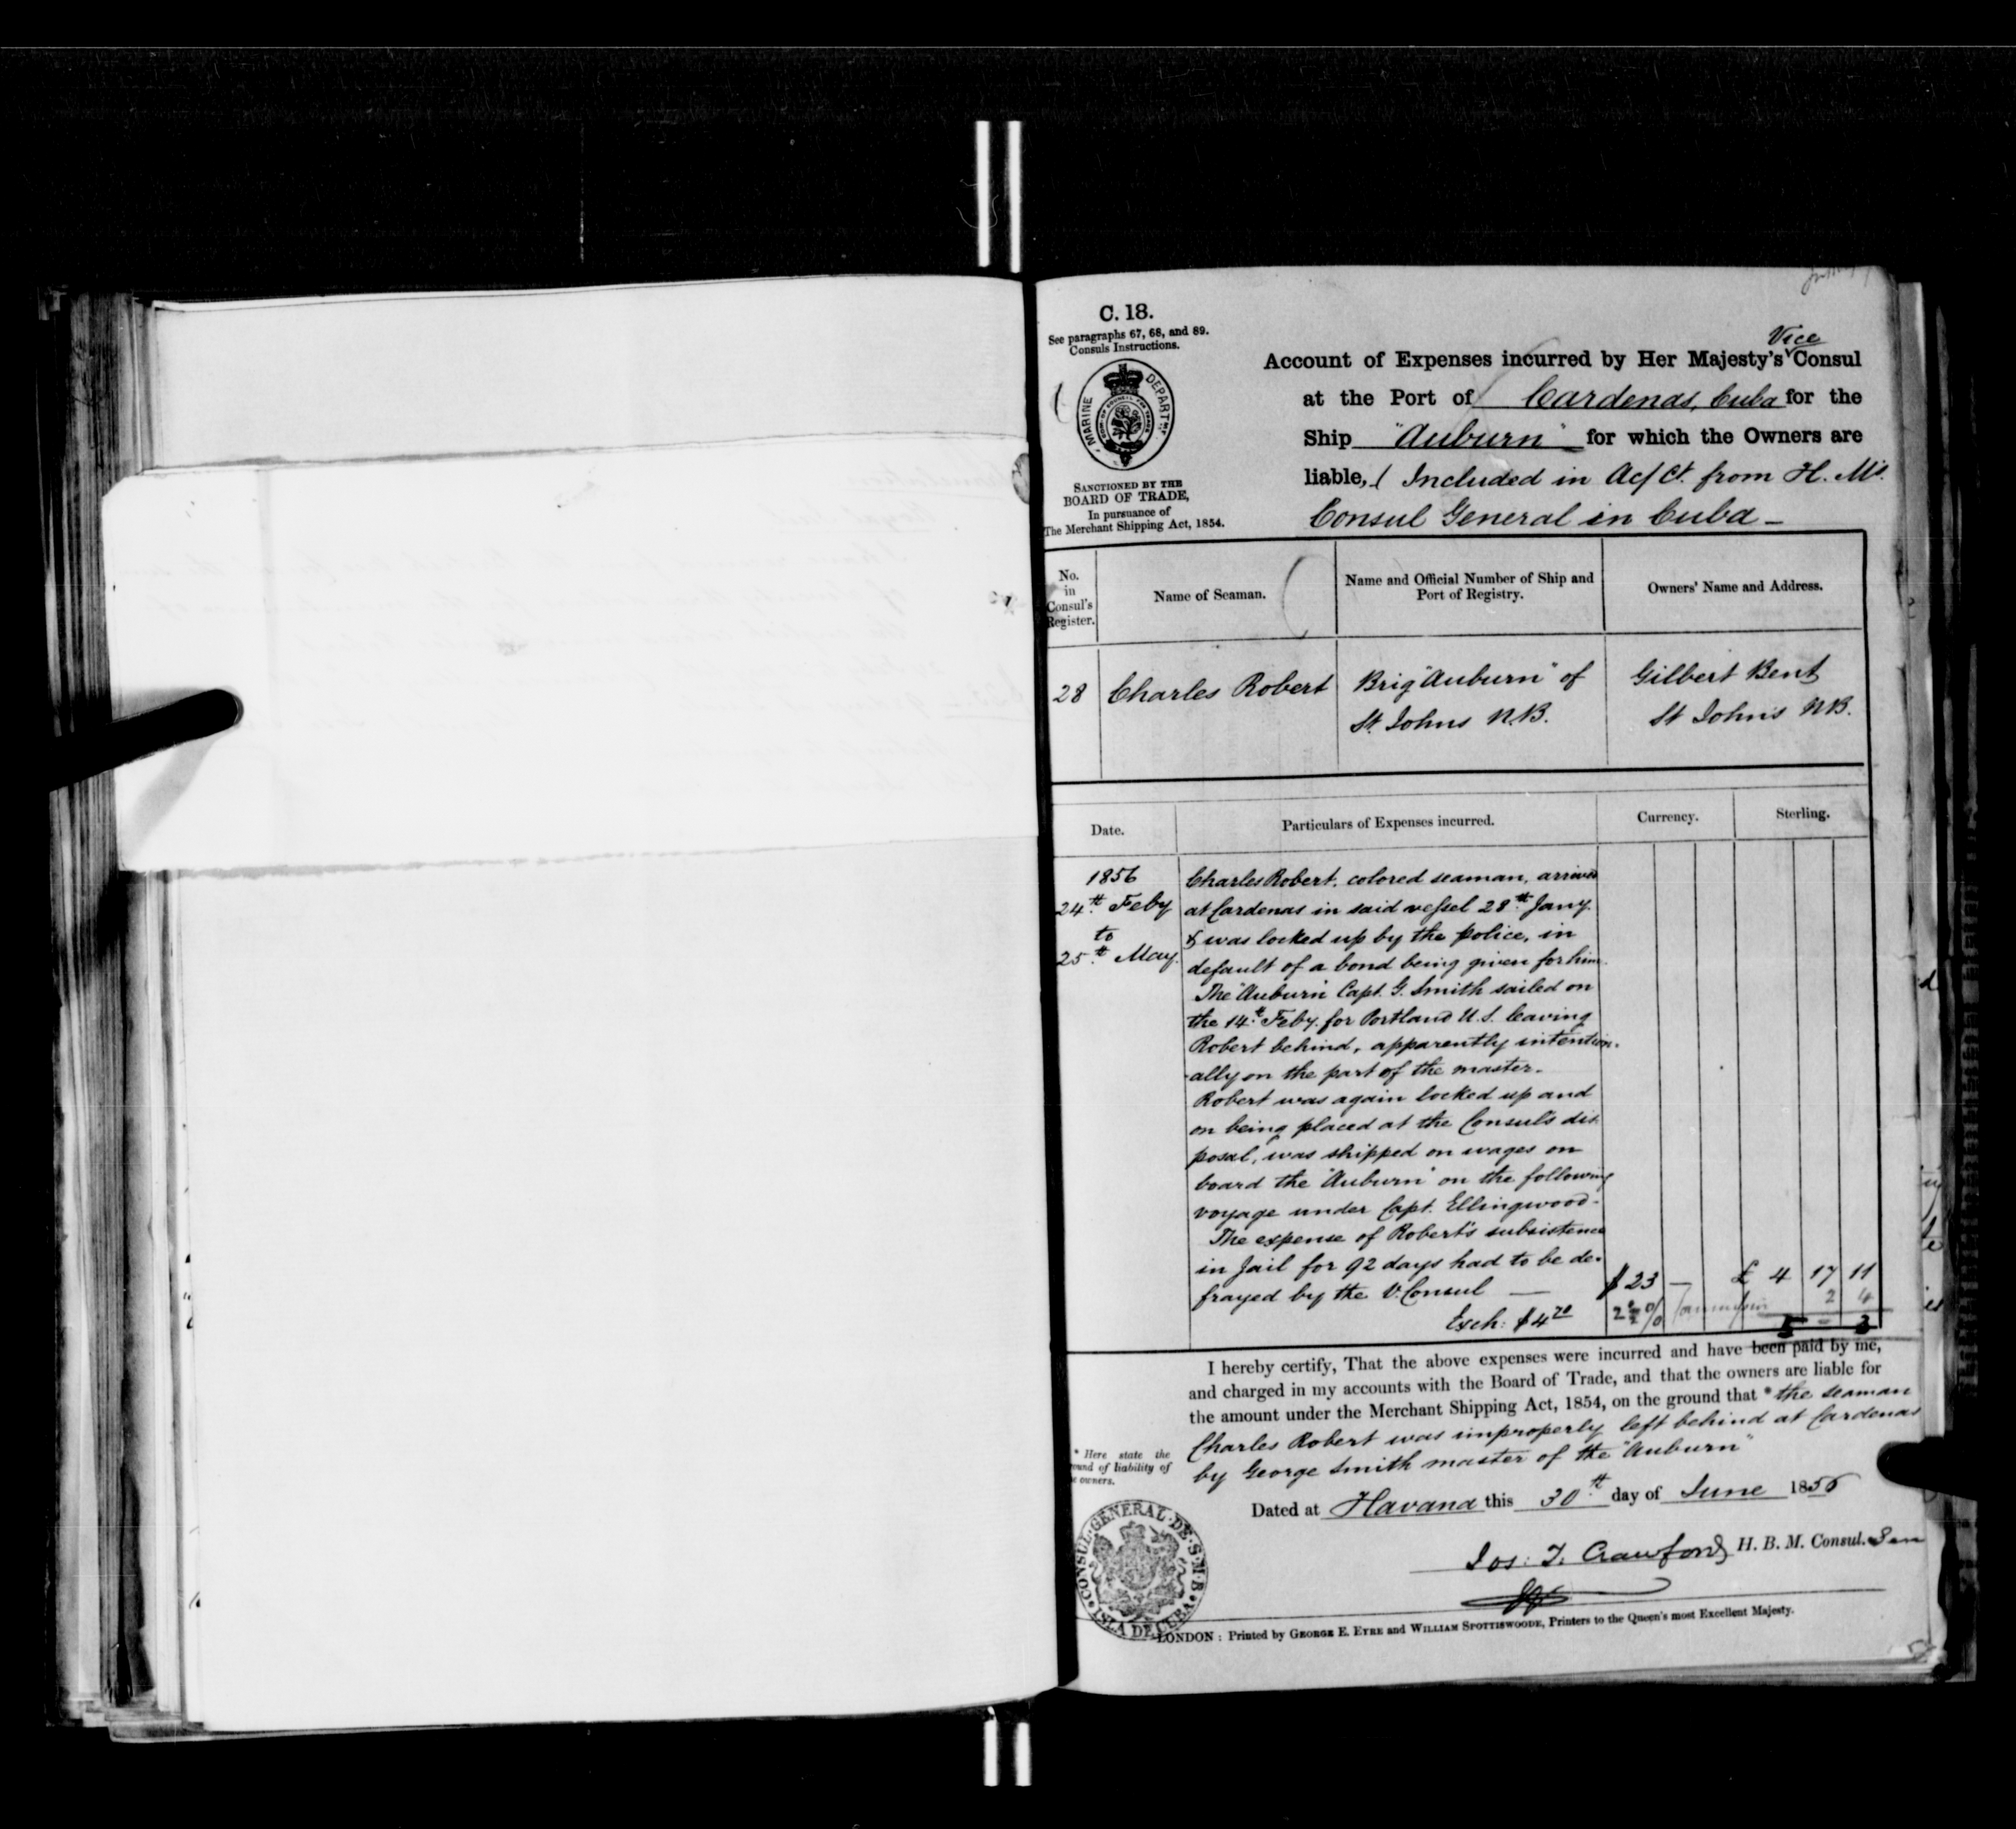 C. 18.
See paragraphs 67, 68, and 89.
Consuls Instructions.
MARINE DEPARTMT.
SANCTIONED BY THE
BOARD OF TRADE,
In pursuance of
The Merchant Shipping Act, 1854.
Vice
Account of Expenses incurred by Her Majesty's Consul
at the Port of Cardenas, Cuba for the
Ship "Auburn" for which the Owners are
liable, ( Included in Ac/Ct. from H. M's.
Consul General in Cuba –
No.
in
Consul's
Register.
Name of Seaman.
Name and Official Number of Ship and
Port of Registry.
Owners' Name and Address.
28
Charles Robert
Brig "Auburn" of
St. Johns N.B.
Gilbert Bent
St Johns NB.
Date.
Particulars of Expenses incurred.
Currency.
Sterling.
1856
24th Feby
to
25th May.
Charles Robert, colored seaman, arrived
at Cardenas in said vessel 28th Jany.
& was locked up by the police, in
default of a bond being given for him.
The "Auburn" Capt. G. Smith sailed on
the 14th Feby. for Portland U.S. leaving
Robert behind, apparently intention-
-ally on the part of the master.
Robert was again locked up and
on being placed at the Consul's dis-
posal, was shipped on wages on
board the "Auburn" on the following
voyage under Capt. Ellingwood –
The expense of Robert's subsistence
in Jail for 92 days had to be de-
frayed by the V. Consul — $23 — £ 4 17 11
Exch: $4.70 2½ % Commission 2 4
5 - 3
I hereby certify, That the above expenses were incurred and have been paid by me,
and charged in my accounts with the Board of Trade, and that the owners are liable for
the amount under the Merchant Shipping Act, 1854, on the ground that * the seaman
Charles Robert was improperly left behind at Cardenas
by George Smith master of the "Auburn"
* Here state the
ound of liability of
owners.
Dated at Havana this 30th day of June 1856
Jos: T. Crawford H. B. M. Consul. Gen
CONSUL GENERAL DE S.M.B.
ISLA DE CUBA
LONDON: Printed by GEORGE E. EYRE and WILLIAM SPOTTISWOODE, Printers to the Queen's most Excellent Majesty.